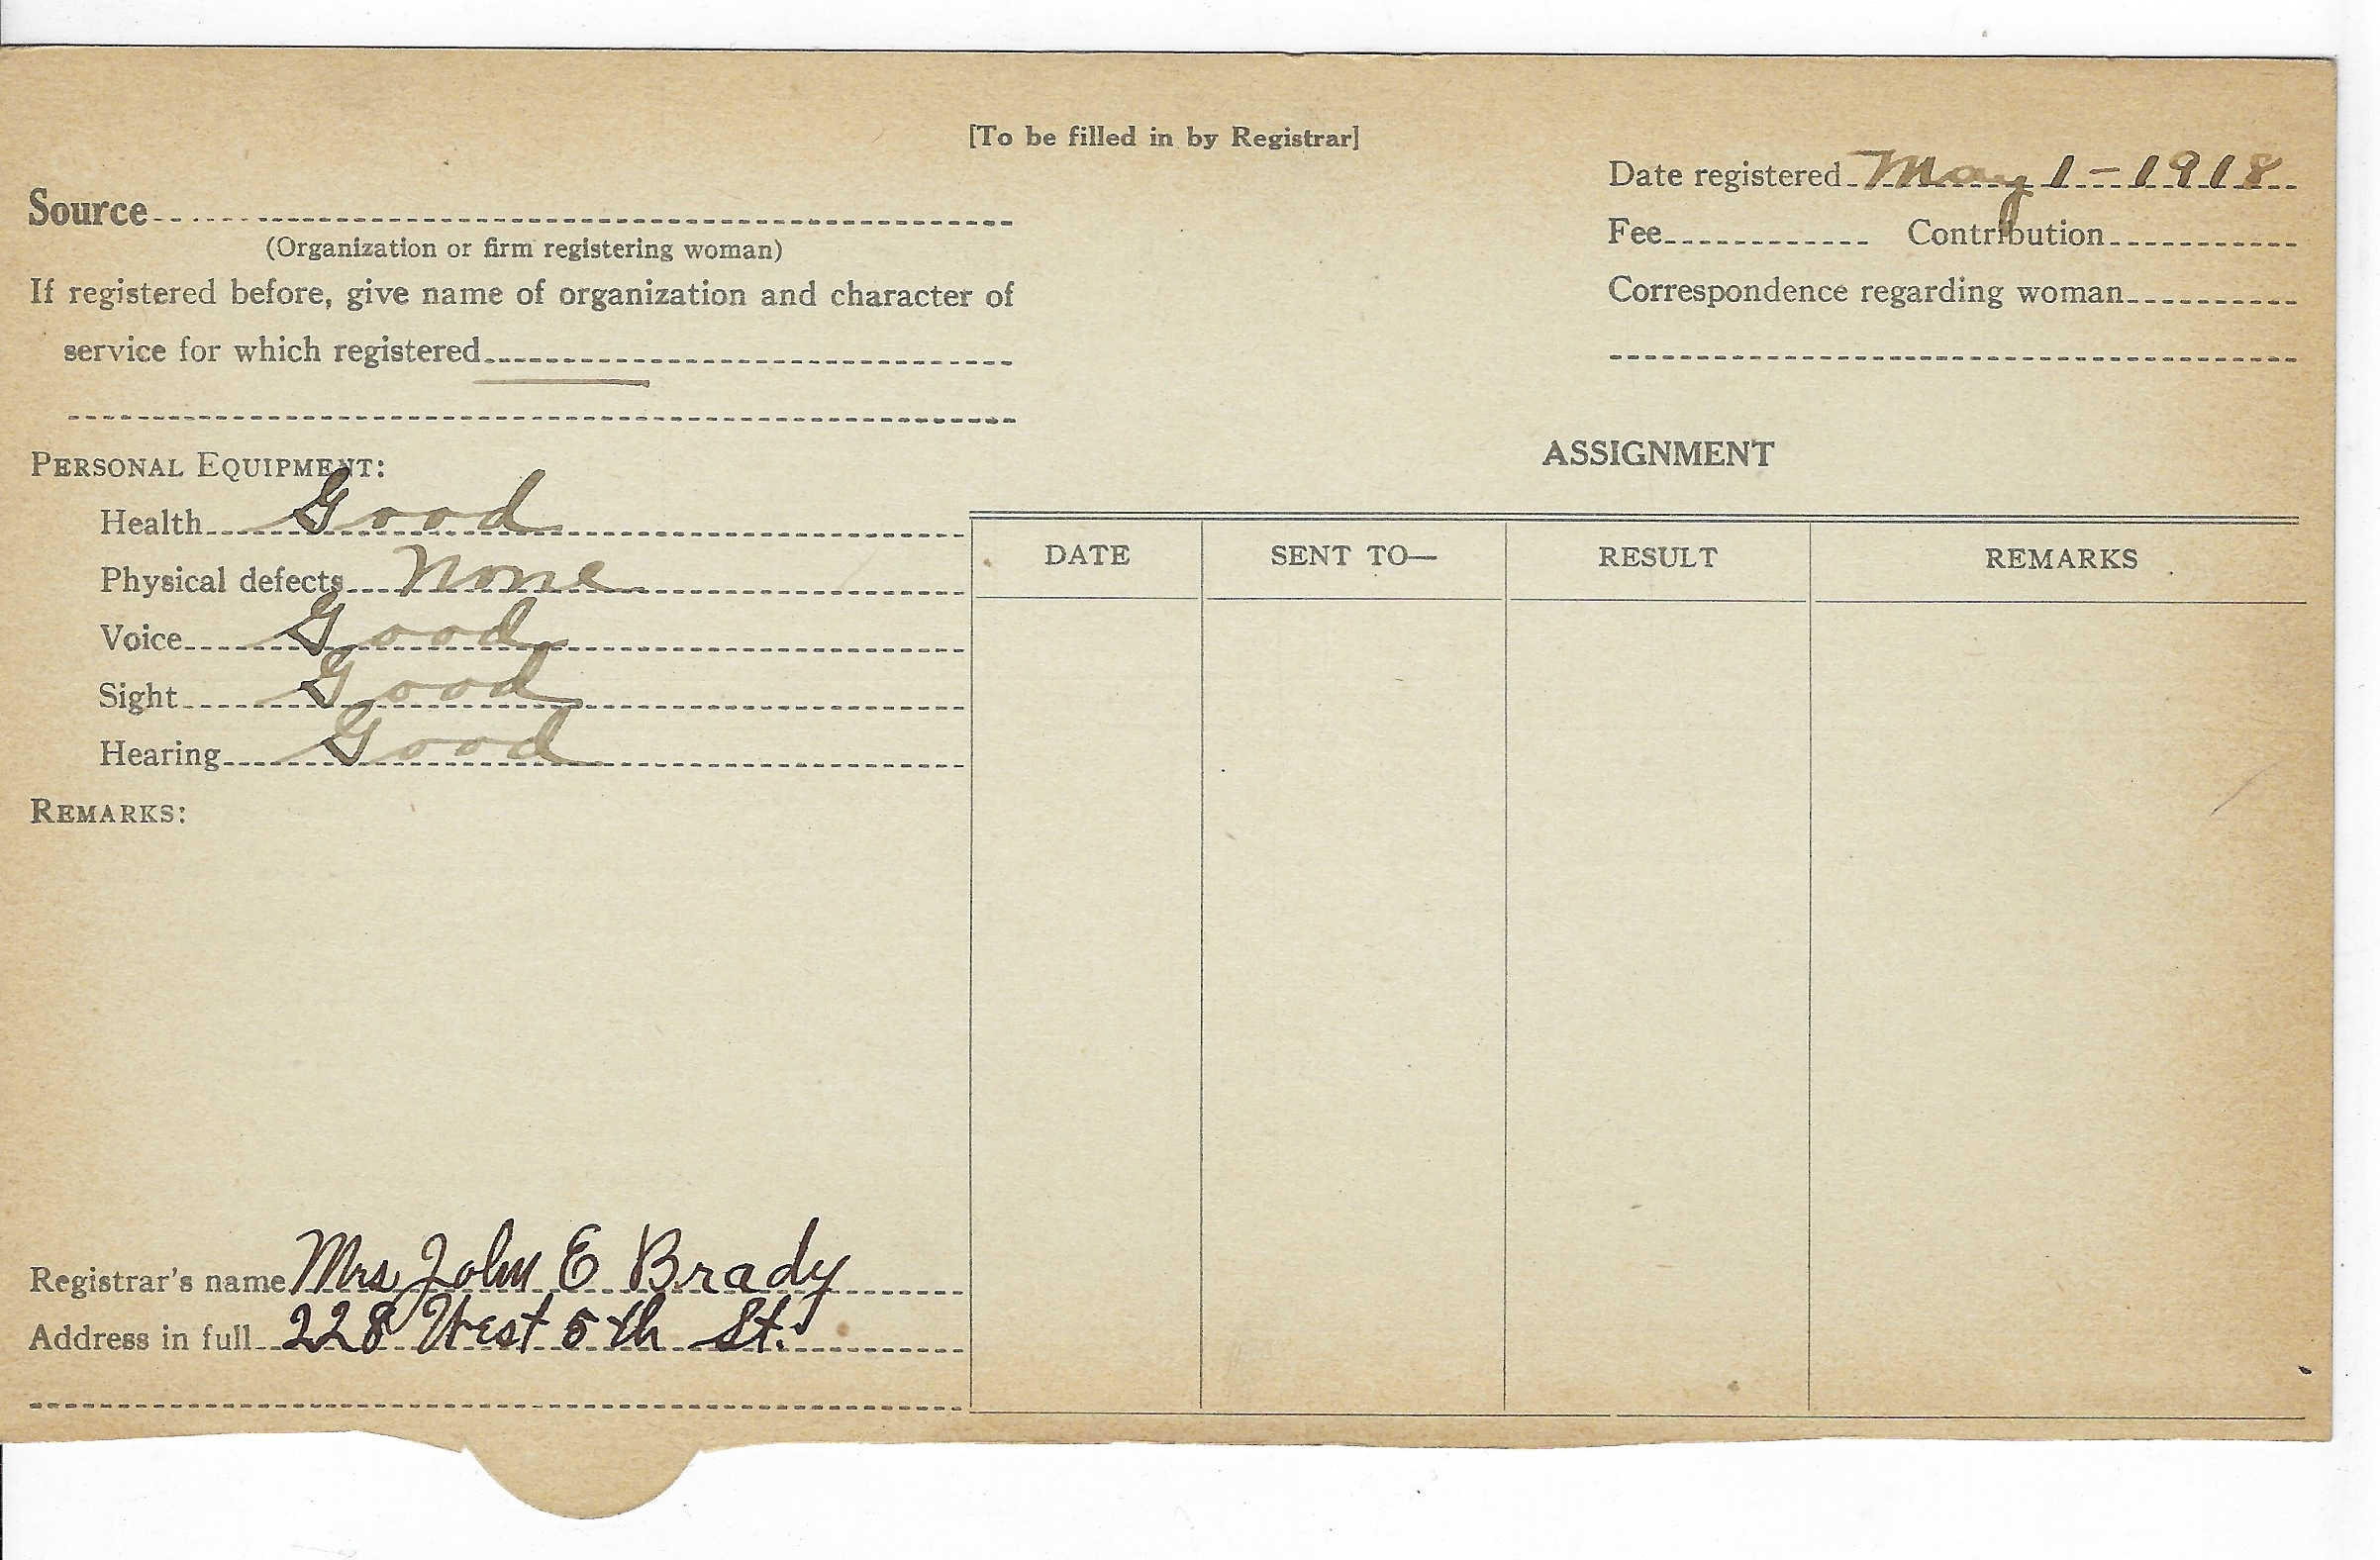 [To be filled in by Registrar]
Source
(Organization or firm registering woman)
If registered before, give name of organization and character of
service for which registered
Date registered May 1-1918
Fee Contribution
Correspondence regarding woman
PERSONAL EQUIPMENT:
Health Good
Physical defects None
Voice Good
Sight Good
Hearing Good
REMARKS:
Registrar's name Mrs John E Brady
Address in full 228 West 5th St.
ASSIGNMENT
DATE SENT TO— RESULT REMARKS